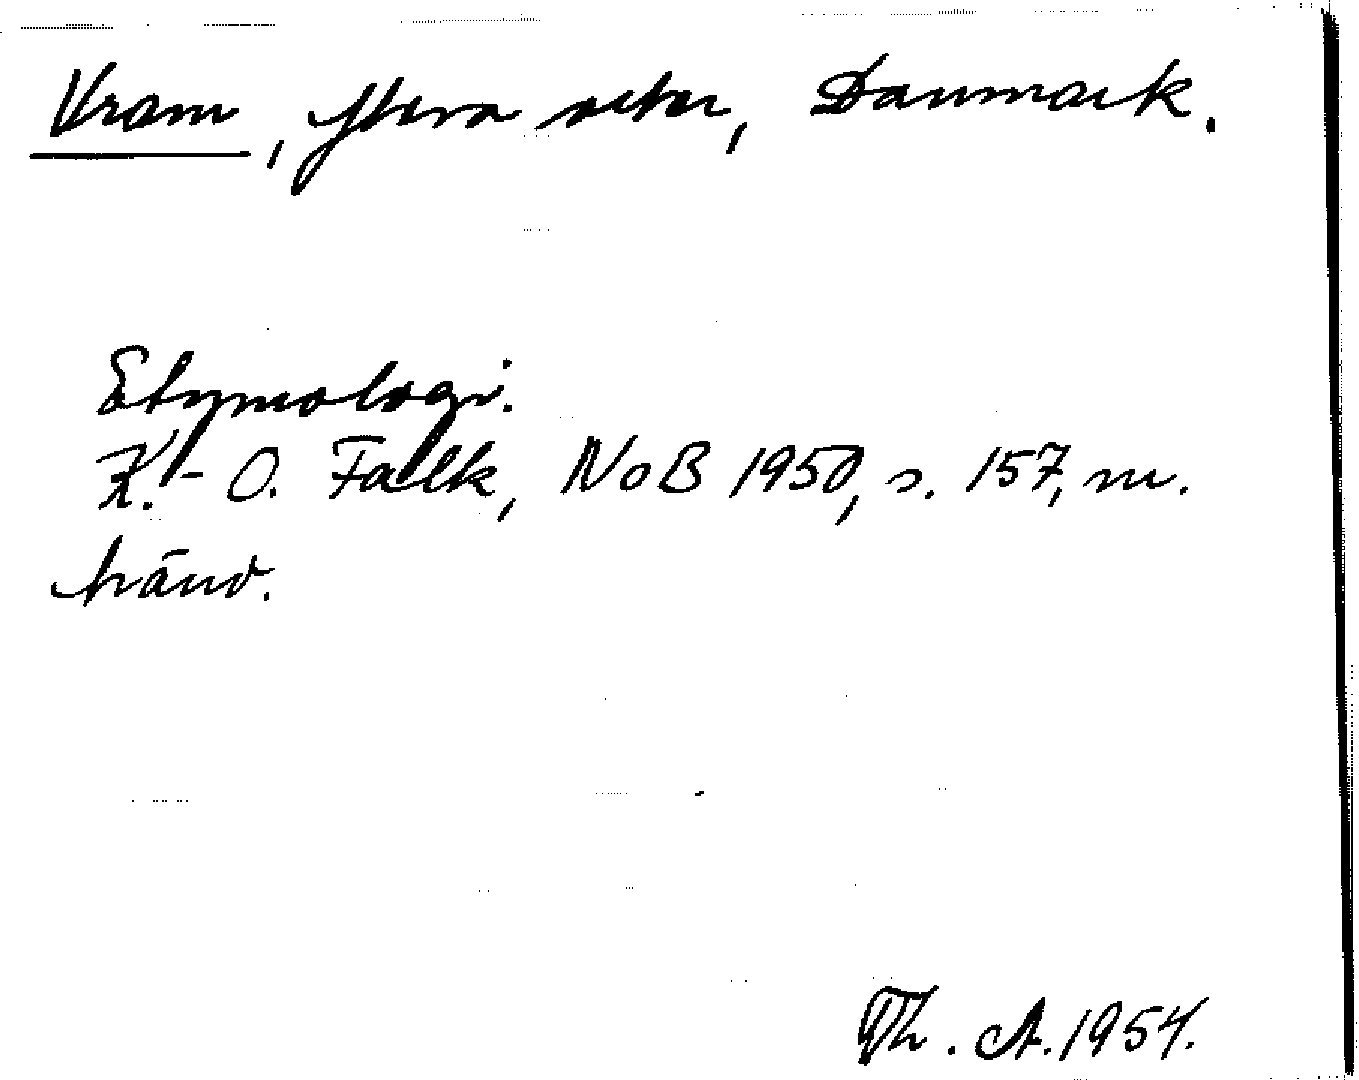 Vram, flera orter, Danmark.
Etymologi.
K.-O. Falk, NoB 1950, s. 157, m.
hänv.
Th. A. 1954.